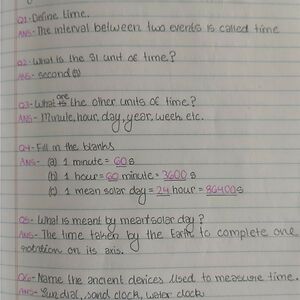 Q1- Define time.
ANS- The interval between two events is called time
Q2- What is the SI unit of time?
ANS- second(s)
Q3- What are the other units of time?
ANS- Minute, hour, day, year, week etc.
Q4- Fill in the blanks
ANS- (a) 1 minute = 60s
(b) 1 hour = 60 minute = 3600s
(c) 1 mean solar day = 24 hour = 86400s
Q5- What is meant by mean solar day?
ANS- The time taken by the Earth to complete one
rotation on its axis.
Q6- Name the ancient devices used to measure time.
ANS- Sun dial, sand clock, water clock